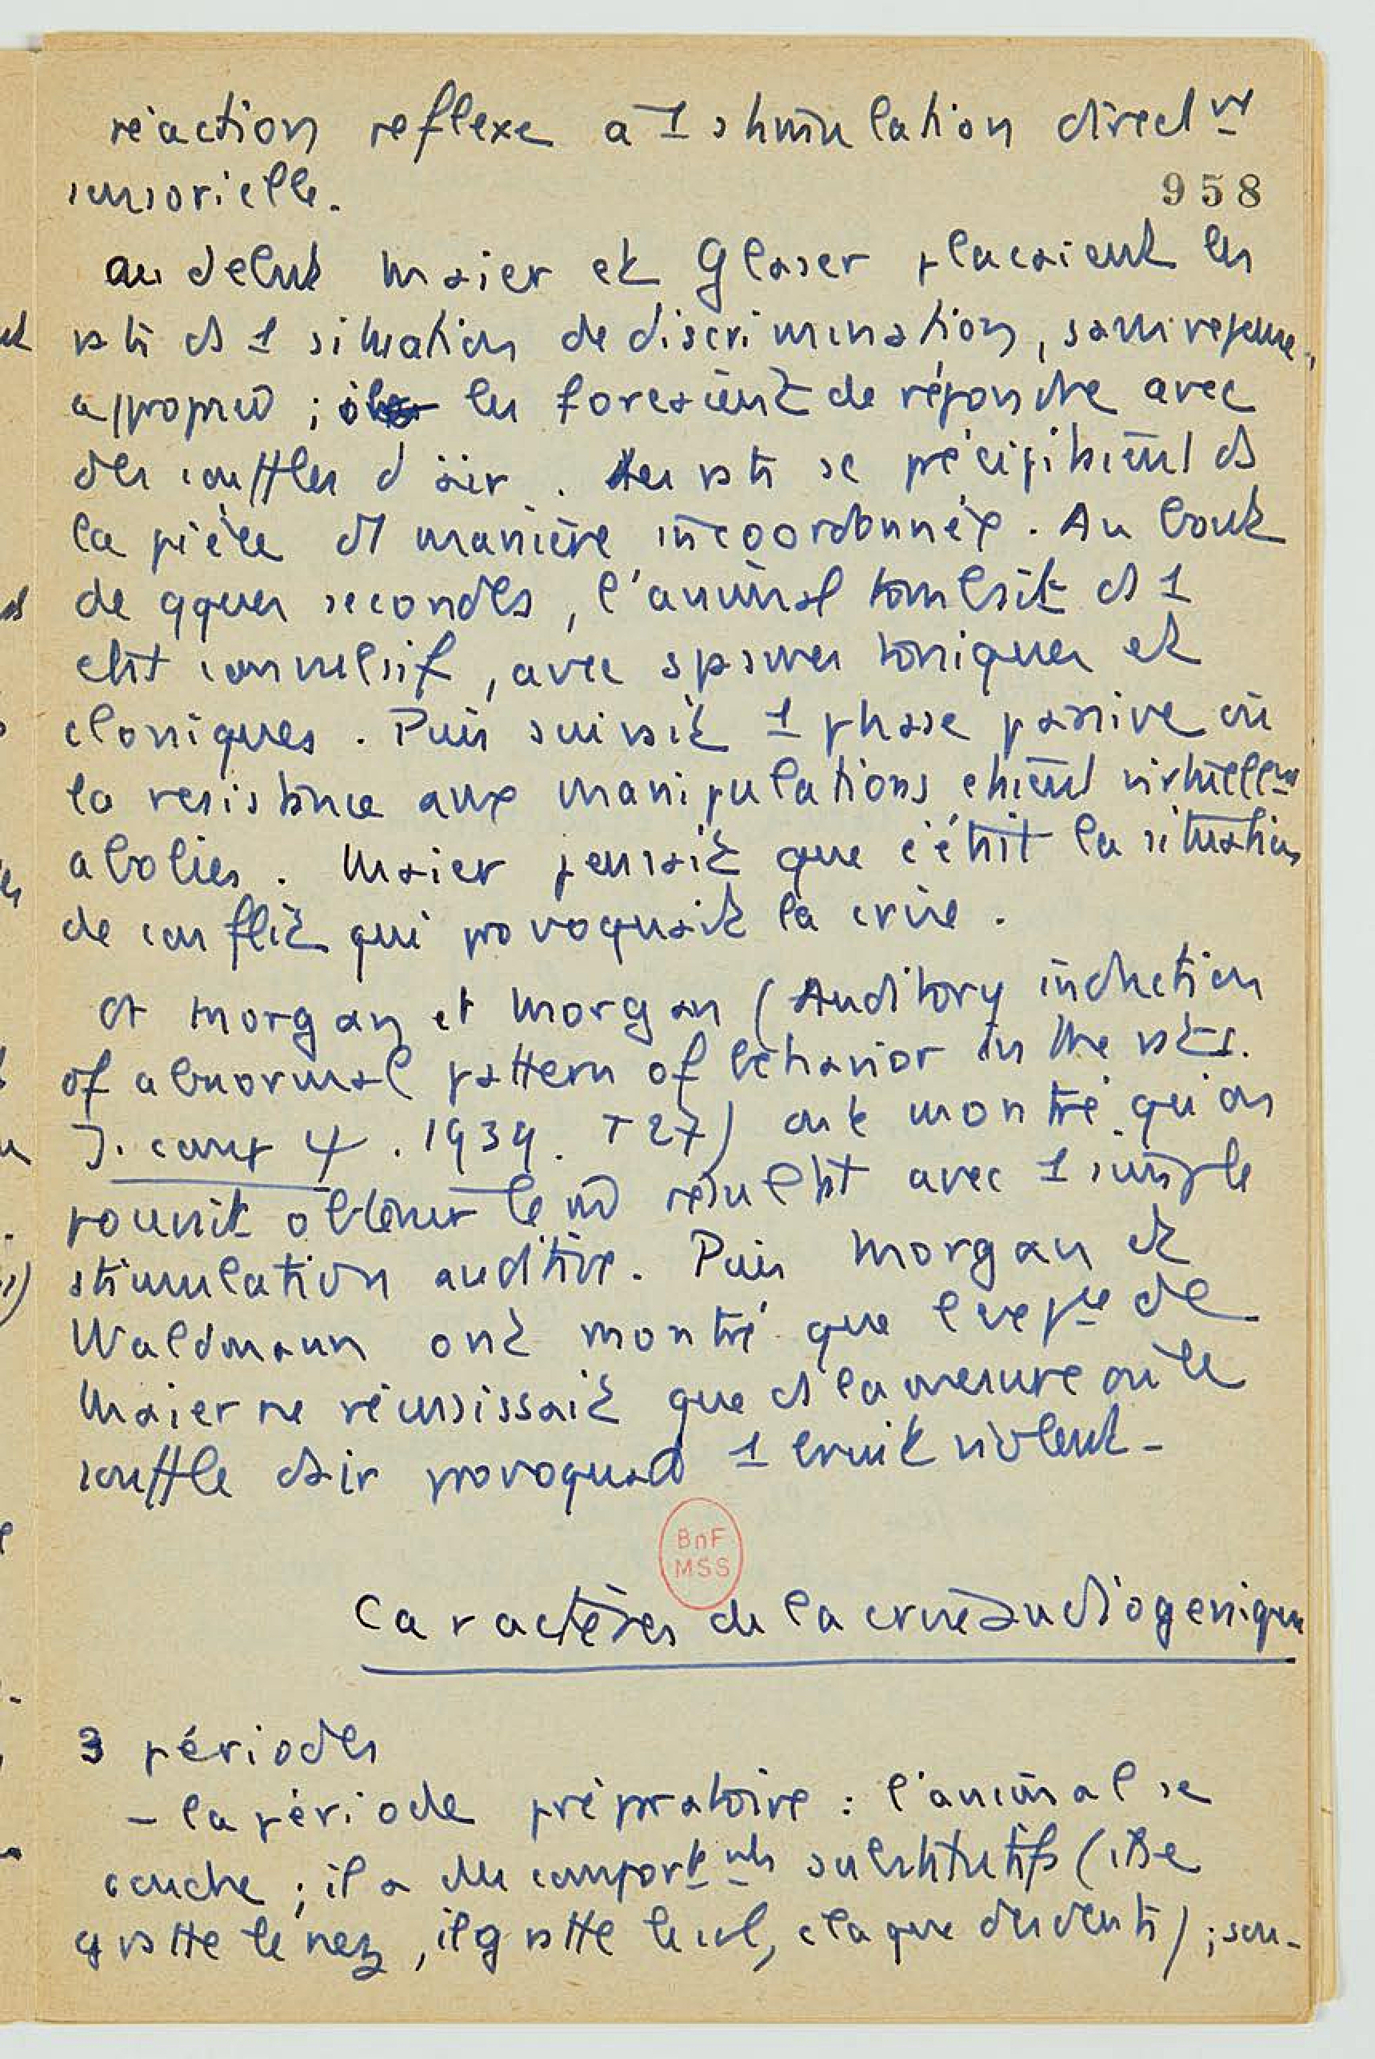 réaction reflexe a 1 stimulation direct nt
sensorielle.
958
au debut Maier et Glaser placaient les
rats ds 1 situation de discrimination, sans reponse
approprié ; les forcaient de répondre avec
des souffles d'air. Les rats se précipitaient ds
la pièce d' manière incoordonnée. Au bout
de qques secondes, l'animal tombait ds 1
etat convulsif, avec spasmes toniques et
cloniques. Puis suivait 1 phase passive où
la resistance aux manipulations etaient virtuellemt
abolies. Maier pensait que c'était la situation
de conflit qui provoquait la crise.
Morgan et Morgan (Auditory induction
of abnormal pattern of behavior in the rats.
J. comp ψ. 1939. T 27) ont montré qu'on
pouvait obtenir le m̄ résultat avec 1 simple
stimulation auditive. Puis Morgan et
Waldmann ont montré que l'expce de
Maier ne réussissait que ds la mesure où le
souffle d'air provoquait 1 bruit violent.
BnF
MSS
Caractères de la crise audiogenique
3 périodes
- la période préparatoire : l'animal se
couche ; il a des comportmts substitutifs (il se
gratte le nez, il gratte le sol, claque des dents) ; sou-